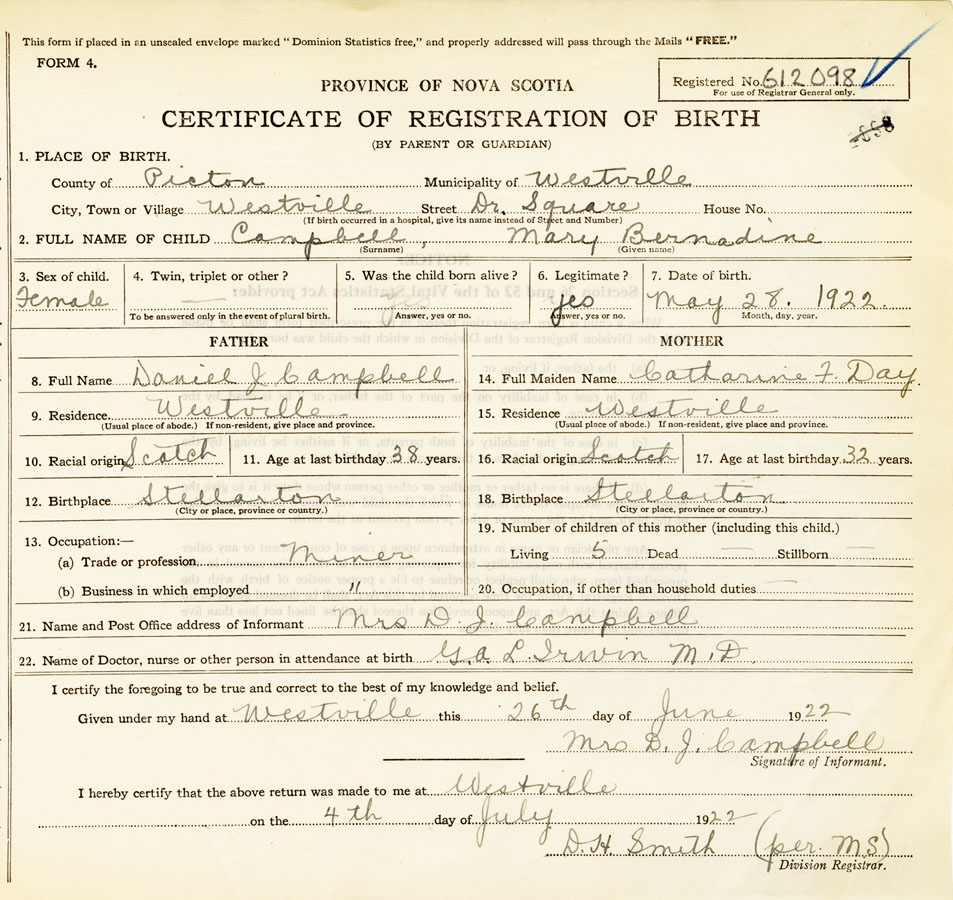 This form if placed in an unsealed envelope marked "Dominion Statistics free," and properly addressed will pass through the Mails "FREE."
FORM 4.
Registered No. 612098
For use of Registrar General only.
PROVINCE OF NOVA SCOTIA
CERTIFICATE OF REGISTRATION OF BIRTH
(BY PARENT OR GUARDIAN)
1. PLACE OF BIRTH.
County of Pictou Municipality of Westville
City, Town or Village Westville Street Dr. Square House No.
(If birth occurred in a hospital, give its name instead of Street and Number)
2. FULL NAME OF CHILD Campbell, Mary Bernadine
(Surname) (Given name)
3. Sex of child. 4. Twin, triplet or other? 5. Was the child born alive? 6. Legitimate? 7. Date of birth.
Female — yes yes May 28. 1922.
To be answered only in the event of plural birth. Answer, yes or no. Answer, yes or no. Month, day, year.
FATHER MOTHER
8. Full Name Daniel J Campbell 14. Full Maiden Name Catharine F. Day.
9. Residence. Westville 15. Residence Westville
(Usual place of abode.) If non-resident, give place and province. (Usual place of abode.) If non-resident, give place and province.
10. Racial origin Scotch 11. Age at last birthday 38 years. 16. Racial origin Scotch 17. Age at last birthday 32 years.
12. Birthplace Stellarton 18. Birthplace Stellarton
(City or place, province or country.) (City or place, province or country.)
19. Number of children of this mother (including this child.)
13. Occupation:—
(a) Trade or profession Miner Living 5 Dead — Stillborn —
(b) Business in which employed " 20. Occupation, if other than household duties —
21. Name and Post Office address of Informant Mrs D. J. Campbell
22. Name of Doctor, nurse or other person in attendance at birth G.A. L. Irwin M.D.
I certify the foregoing to be true and correct to the best of my knowledge and belief.
Given under my hand at Westville this 26th day of June 1922
Mrs D. J. Campbell
Signature of Informant.
I hereby certify that the above return was made to me at Westville
on the 4th day of July 1922
D. H. Smith (per. M.S)
Division Registrar.